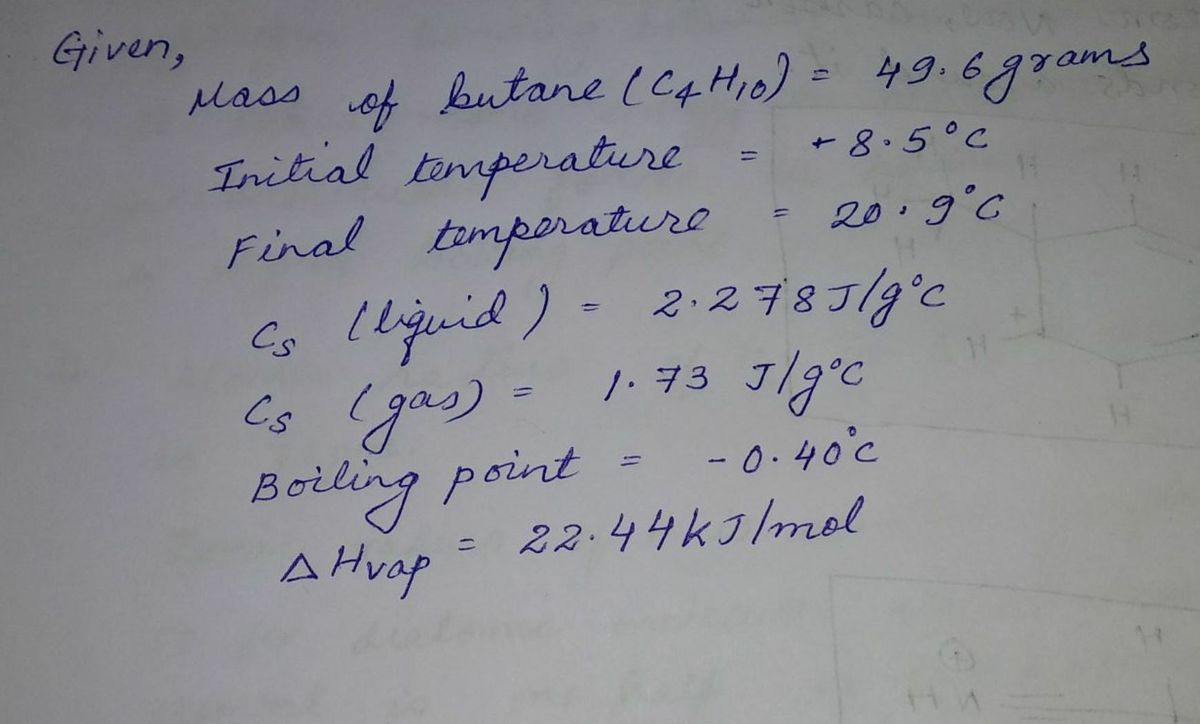 Given,
Mass of butane (C4H10) = 49.6 grams
Initial temperature = +8.5°C
Final temperature = 20.9°C
Cs (liquid) = 2.278 J/g°C
Cs (gas) = 1.73 J/g°C
Boiling point = -0.40°C
ΔHvap = 22.44kJ/mol